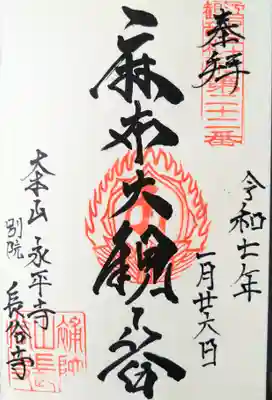 奉拝
令和七年
一月廿六日
麻布大観音
大本山 永平寺
別院 長谷寺